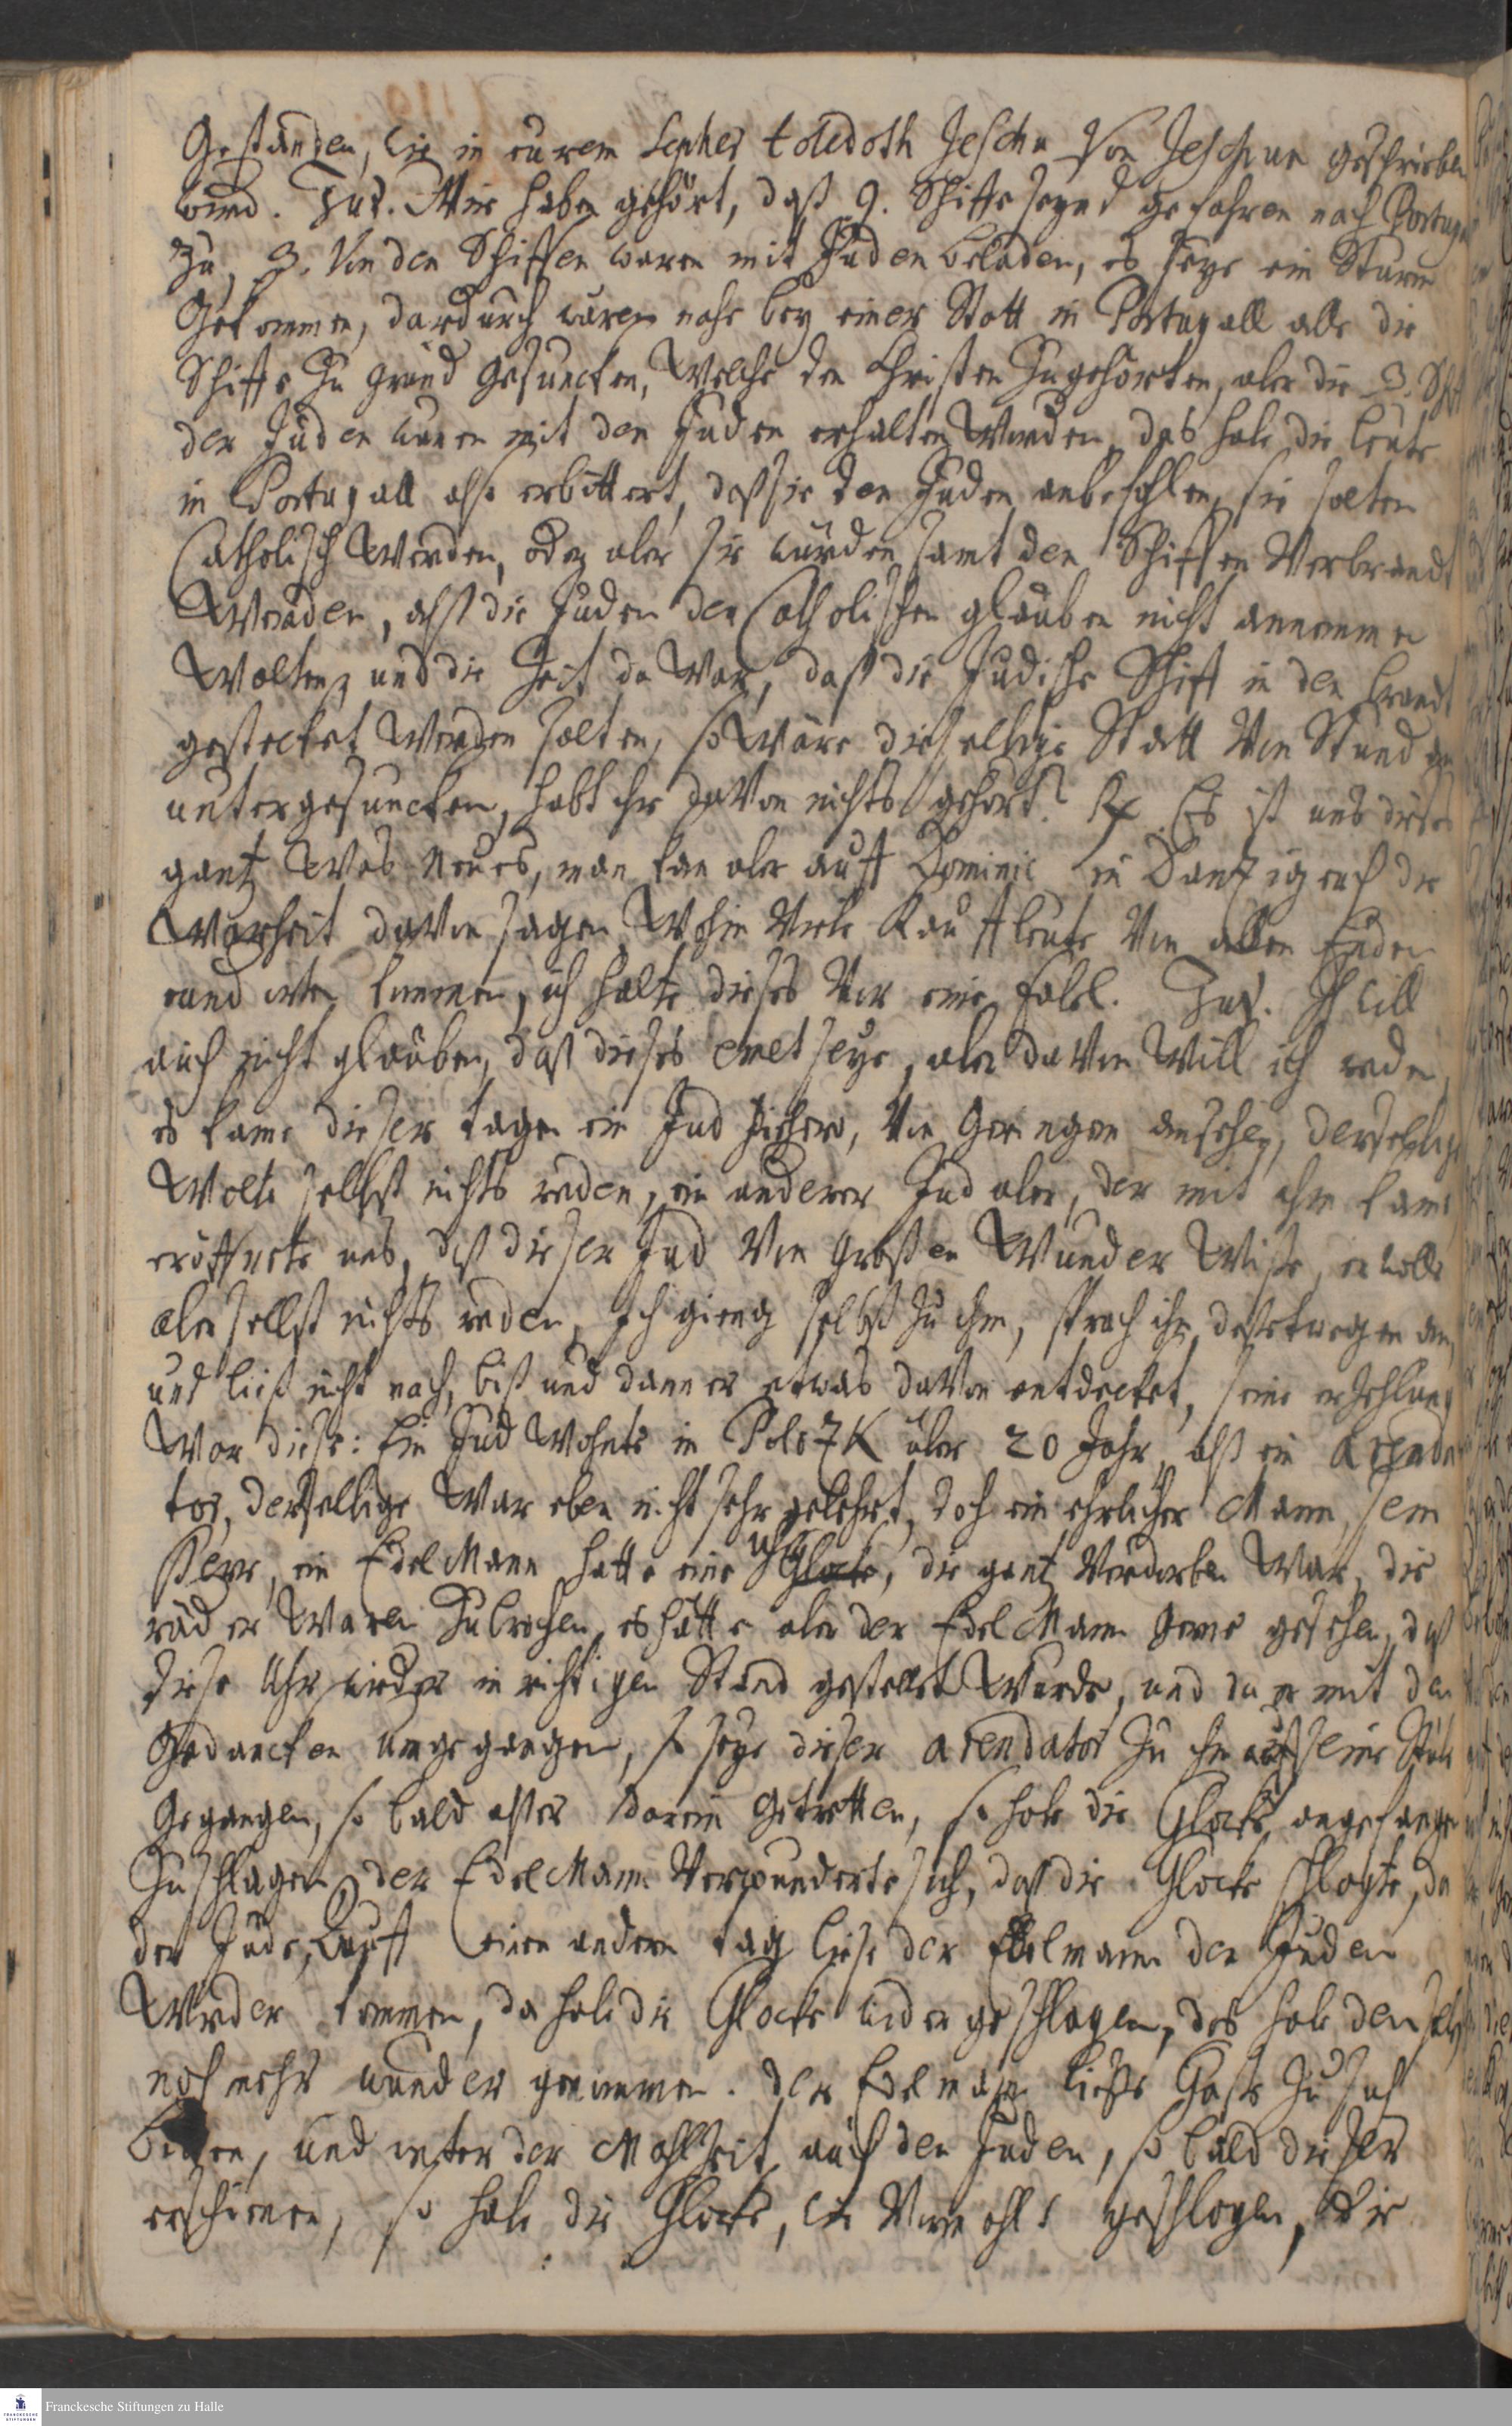 Gestanden, wie in eurem Sepher toledoth Jeschu Von Jeschua geschrieben
wird. Jud. Wir haben gehört, daß 9. Schiffe seynd gefahren nach Portugal
zu, 3. Von den Schiffen waren mit Juden beladen, es seye ein Sturm
Gekommen, dardurch wären nahe bey einer Statt in Portugall alle die
Schiffe zu grund Gesuncken, Welche den Christen zugehörten, aber die 3. Schif
der Juden wären mit den Juden erhalten Worden, das habe die leute
in Portugall also erbittert, daß sie den Juden anbefohlen, sie solten
Catholisch Werden, oder aber sie würden samt den Schiffen Verbrandt
Werden, alß die Juden den Catholischen glauben nicht annemmen
Wolten, und die Zeit da War, daß die Jüdische Schiff in den brandt
gestecket Werden solten, so Wäre dieselbige Statt Von Stund an
untergesuncken, habt ihr daVon nichts gehört? Rx. Es ist uns dieses
gantz Was Neues, man kan aber auff Dominic in Dantzig euch die
Warheit daVon sagen, Wohin Viele Kauffleute Von allen Enden
und orten kommen, ich halte dieses Vor eine fabel. Jud. Ich will
auch nicht glauben, daß dieses emet seye, aber daVon Will ich reden,
es kame dieser tagen ein Jud hieher, Von Geringen ansehen, derselbige
Wolte selbst nichts reden, ein anderer Jud aber, der mit ihm kame
eröffnete uns, daß dieser Jud Von grosen Wunder Wisse, er wolle
aber selbst nichts reden, Ich gieng selbst zu ihm, sprach ihn destwegen an,
und ließ nicht nach, biß und dann er etwas daVon entdecket, seine erzehlung
War diese: Ein Jud Wohnte in PolozK über 20 Jahr alß ein Arenda
tor, derselbige War eben nicht sehr gelehrt, doch ein ehrlicher Mann, sein
Herr, ein EdelMann hatte eine Uhr Glocke, die gantz Verdorben War, die
räder Waren zubrochen, es hätte aber der EdelMann gerne gesehen, daß
diese Uhr wieder in richtigen Stand gestellet Wurde, und da er mit den
Gedancken umgegangen, so seye dieser arendator zu ihm auf seine Stube
Gegangen, so bald alß er darein Getretten, so habe die Glocke angefangen
Zu schlagen, der EdelMann Verwunderte sich, daß die Glocke schlagte, da
der Jude, Auff einen andern tag liese der Edelmann den Juden
Wieder kommen, da habe die Glocke wieder geschlagen, das habe denselb
noch mehr wunder genommen. der Edelmann liesse Gäste zu sich
bitten, und unter der Mahlzeit auch den Juden, so bald dieser
erschienen, so habe die Glocke, wie Vormahls geschlagen, die